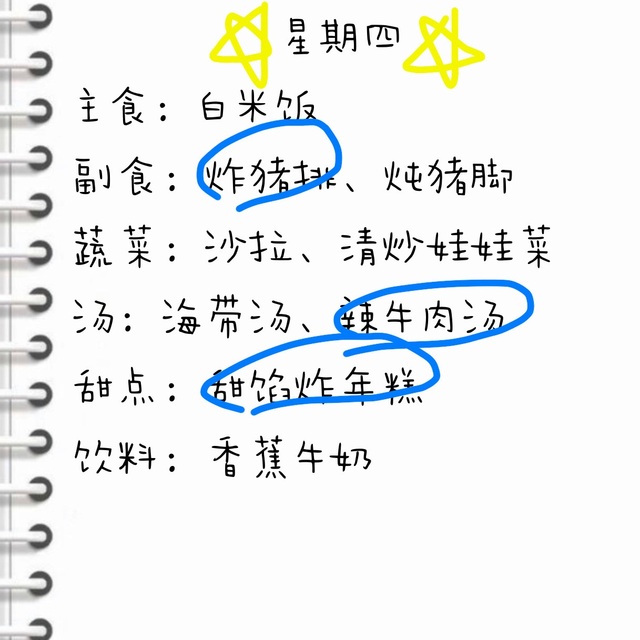 星期四
主食：白米饭
副食：炸猪排、炖猪脚
蔬菜：沙拉、清炒娃娃菜
汤：海带汤、辣牛肉汤
甜点：甜馅炸年糕
饮料：香蕉牛奶